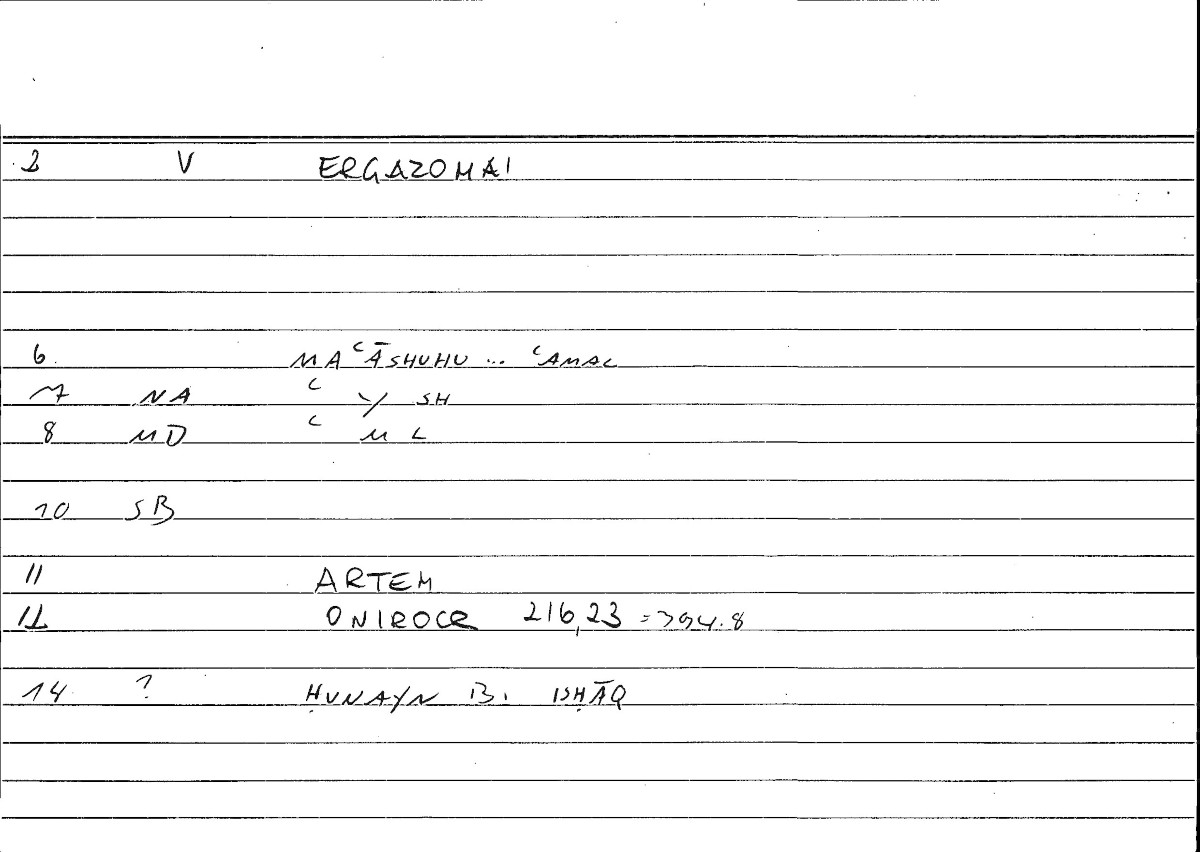 2 V ERGAZOMAI
6. MAʿĀSHUHU ... ʿAMAL
7 NA ʿ Y SH
8 MD ʿ M L
10 SB
11 ARTEM
12 ONIROCR 216,23 = 394.8
14 ? ḤUNAYN B. ISḤĀQ